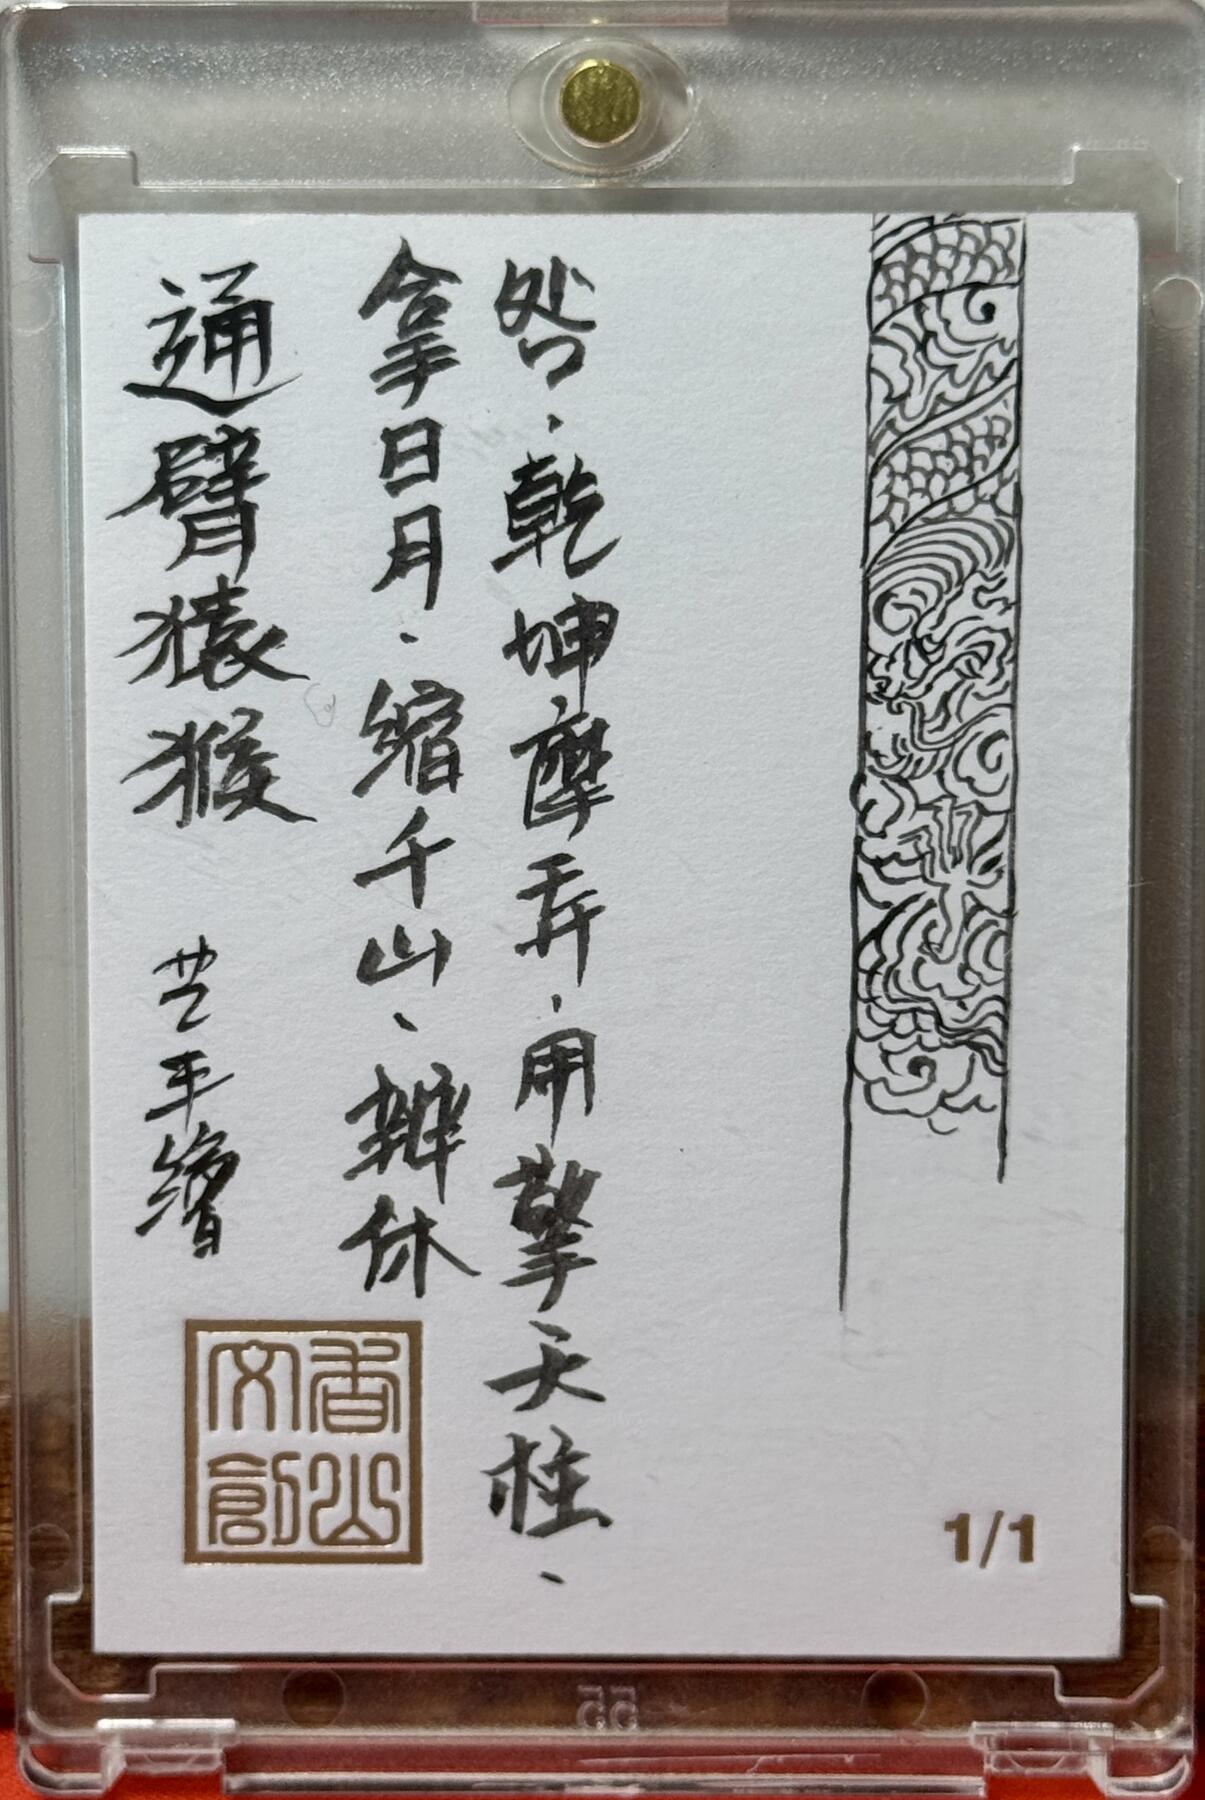 咎、乾坤摩弄、用擎天柱、
拿日月、缩千山、辨休
通臂猿猴
平繪
香山
文創
1/1
55